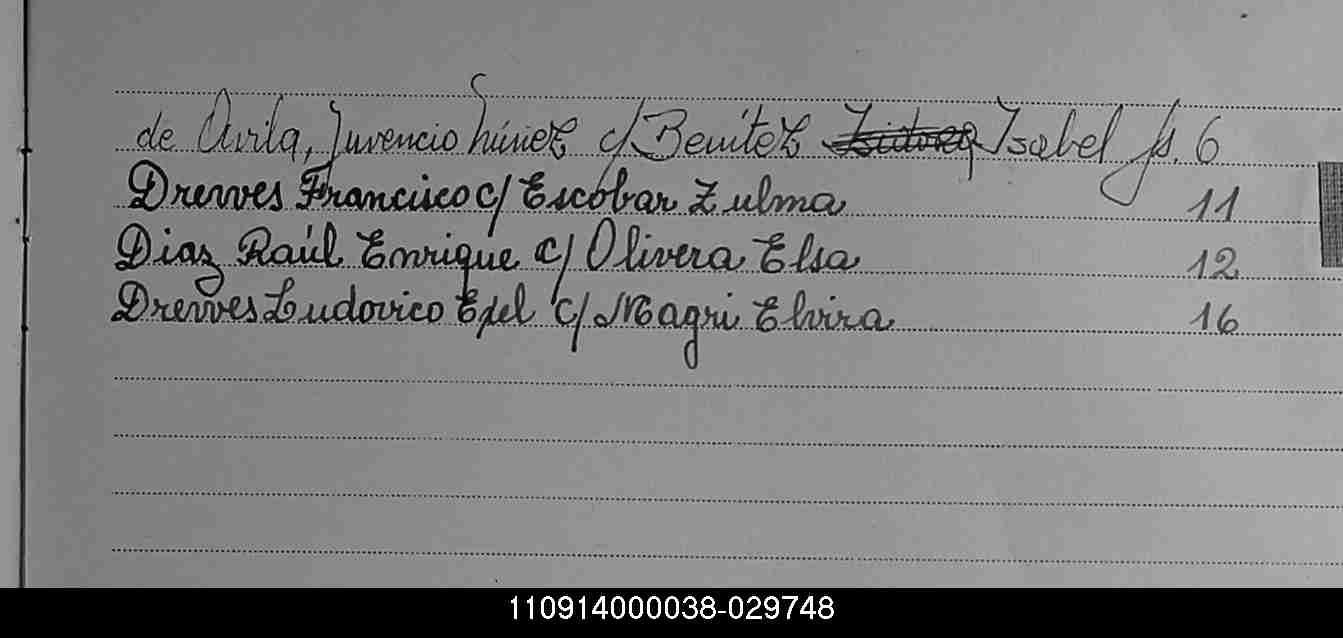 de Avila, Juvencio Núñez c/ Benítez Isabel fs. 6
Drewes Francisco c/ Escobar Zulma 11
Diaz Raúl Enrique c/ Olivera Elsa 12
Drewes Ludovico Exel c/ Magri Elvira 16
110914000038-029748